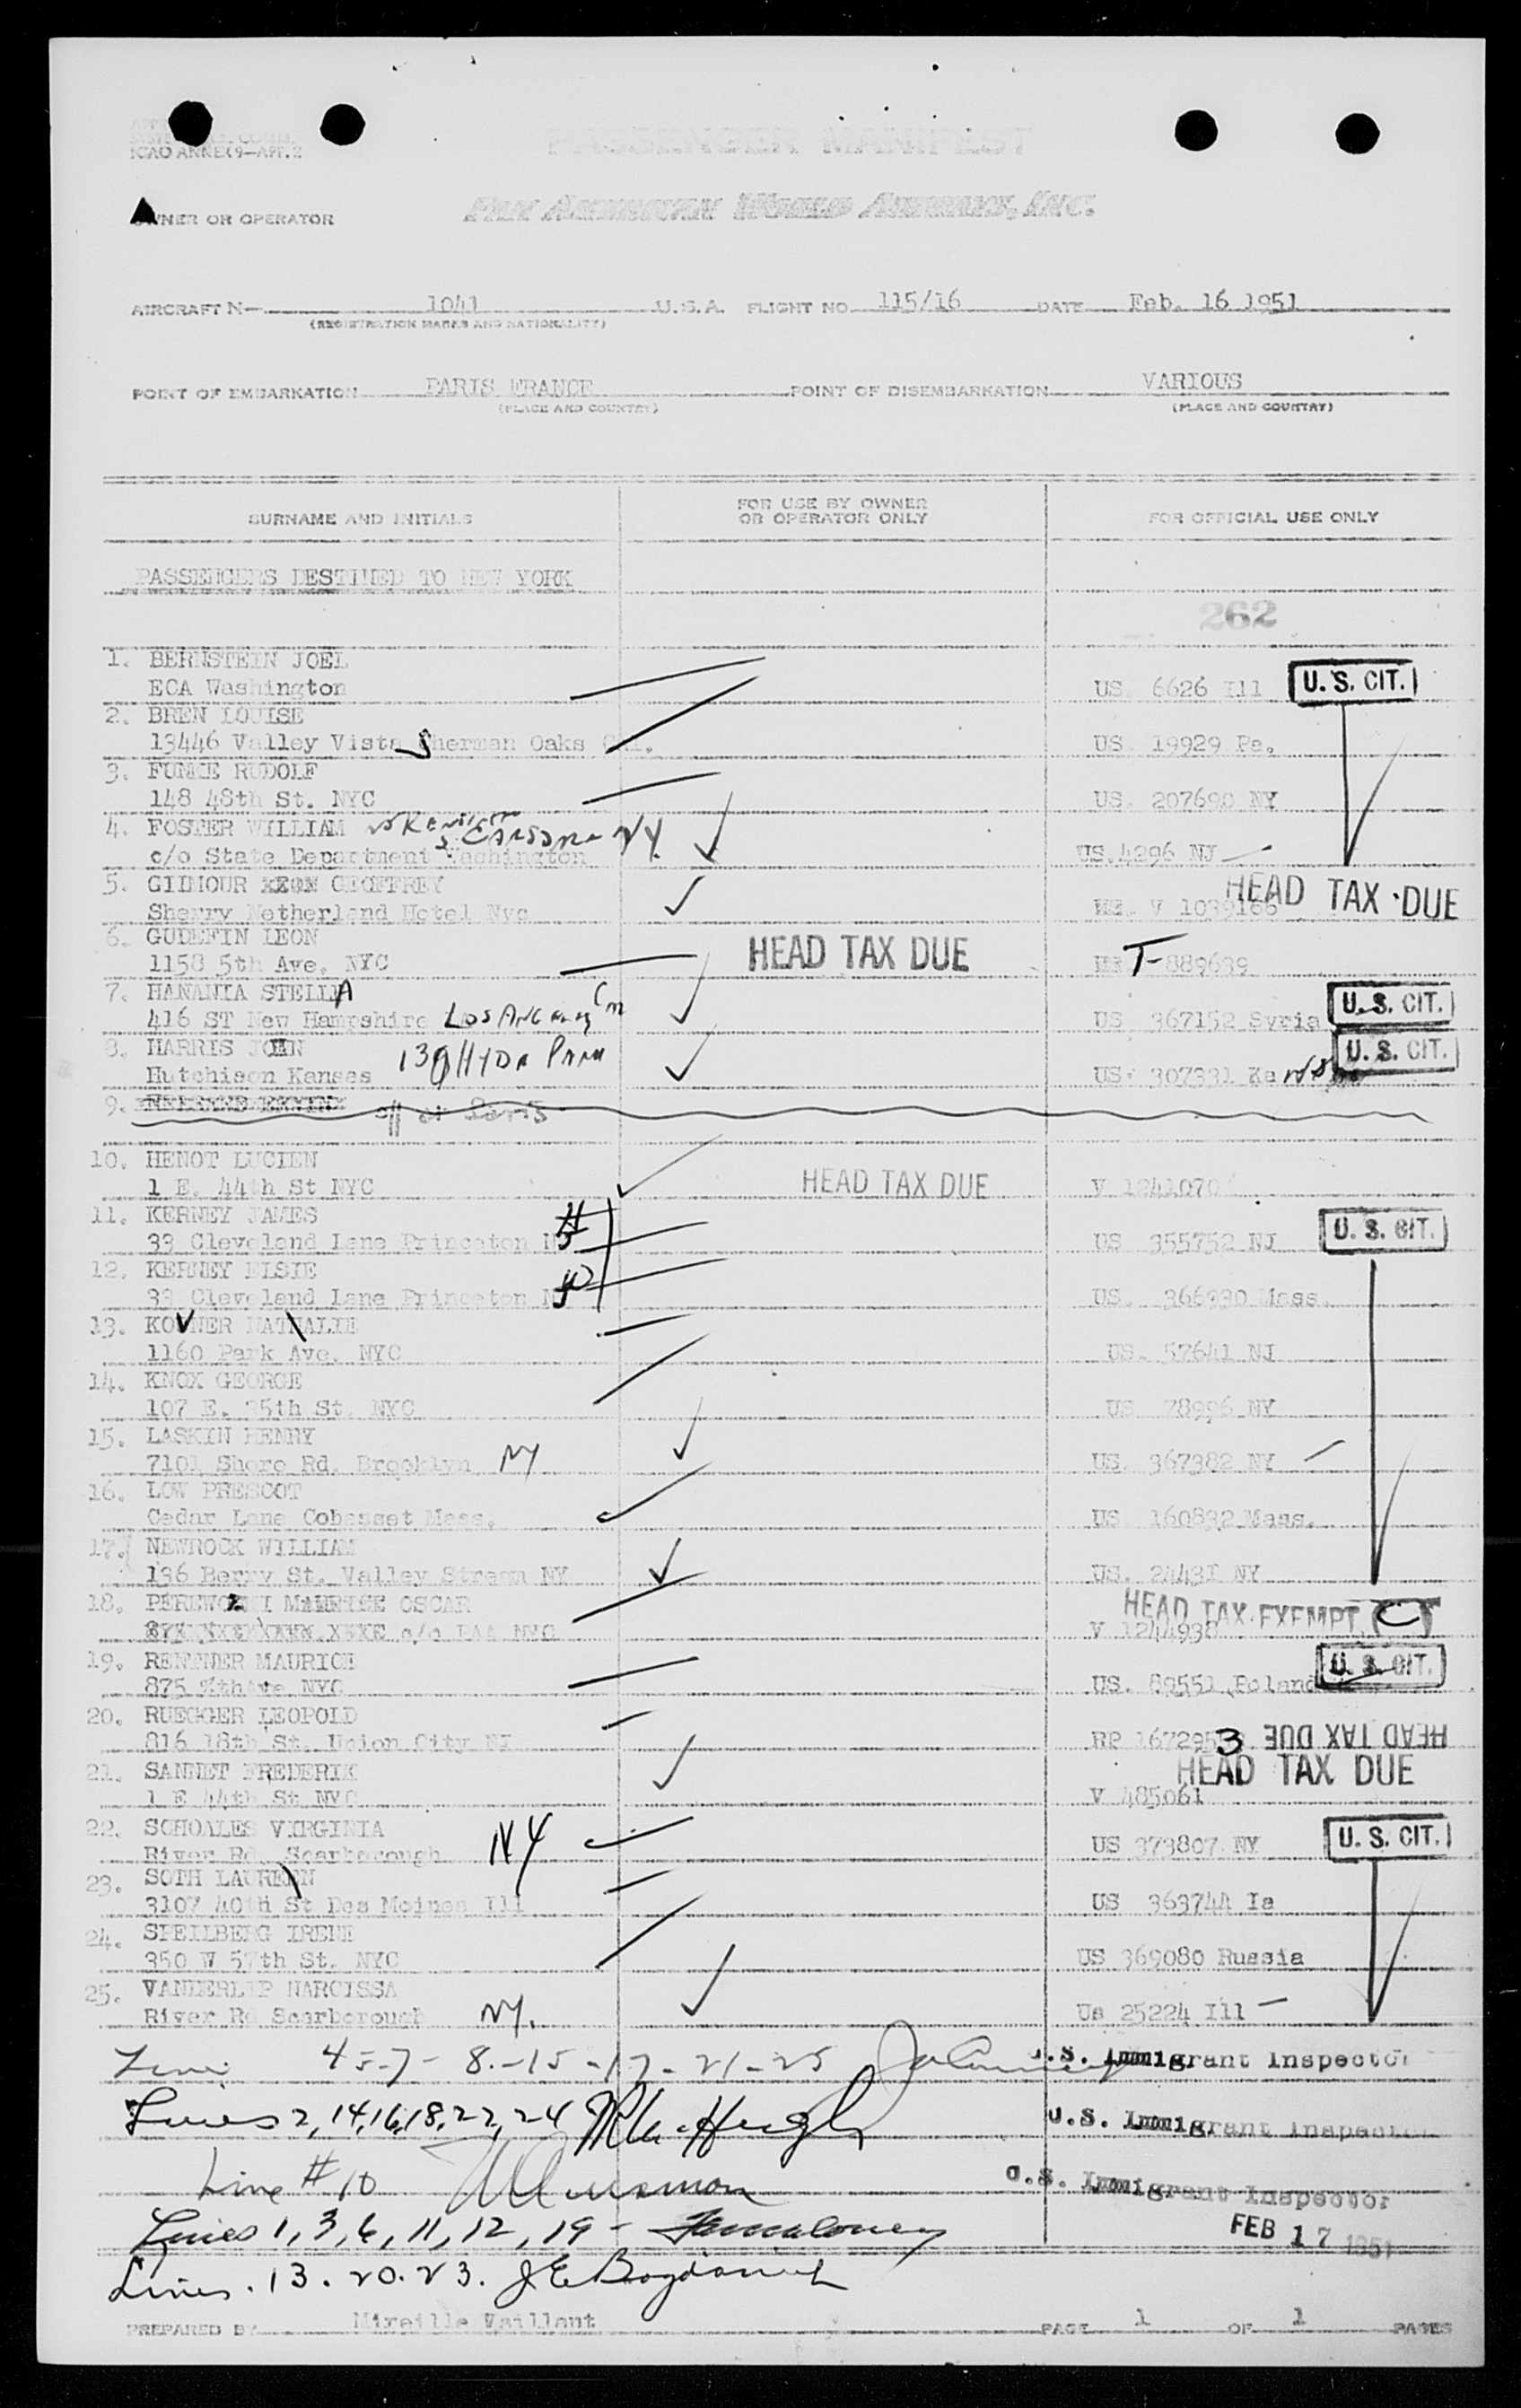 ICAO ANNEX 9—APP. 2
PASSENGER MANIFEST
OWNER OR OPERATOR PAN AMERICAN WORLD AIRWAYS, INC.
AIRCRAFT N— 1041 U.S.A. FLIGHT NO. 115/16 DATE Feb. 16 1951
(REGISTRATION MARKS AND NATIONALITY)
POINT OF EMBARKATION PARIS FRANCE POINT OF DISEMBARKATION VARIOUS
(PLACE AND COUNTRY) (PLACE AND COUNTRY)
SURNAME AND INITIALS FOR USE BY OWNER OR OPERATOR ONLY FOR OFFICIAL USE ONLY
PASSENGERS DESTINED TO NEW YORK
262
1. BERNSTEIN JOEL
ECA Washington US 6626 Ill U.S. CIT.
2. BREN LOUISE
13446 Valley Vista Sherman Oaks Cal. US 19929 Pa.
3. FUNKE RUDOLF
148 48th St. NYC US. 207690 NY
4. FOSTER WILLIAM
c/o State Department Washington NY. US. 4296 NJ
5. GILMOUR GEOFFREY HEAD TAX DUE
Sherry Netherland Hotel Nyc V 1039166
6. GUDEFIN LEON HEAD TAX DUE
1158 5th Ave. NYC T-889639
7. HANANIA STELLA U.S. CIT.
416 ST New Hampshire Los Angeles US 367152 Syria
8. HARRIS JOHN 130 Hyde Park U.S. CIT.
Hutchison Kansas US. 307331 Kans
9. off at Paris
10. HENOT LUCIEN
1 E. 44th St NYC HEAD TAX DUE V 1241070
11. KERNEY JAMES U.S. CIT.
33 Cleveland Lane Princeton NJ US 355752 NJ
12. KERNEY ELSIE
33 Cleveland Lane Princeton NJ US. 366930 Mass.
13. KOVNER NATHALIE
1160 Park Ave. NYC US. 57641 NJ
14. KNOX GEORGE
107 E. 35th St. NYC US 78996 NY
15. LASKIN HENRY
7101 Shore Rd. Brooklyn NY US. 367382 NY
16. LOW PRESCOT
Cedar Lane Cohasset Mass. US 160832 Mass.
17. NEWROCK WILLIAM
136 Berry St. Valley Stream NY US. 24431 NY
18. MAURICE OSCAR HEAD TAX EXEMPT
c/o PAA NYC V 1244938
19. RENTNER MAURICE U.S. CIT.
875 NYC US. 89551 Poland
20. RUEGGER LEOPOLD
816 18th St. Union City NJ RP 1672953 HEAD TAX DUE
21. SANNET FREDERIK HEAD TAX DUE
1 E 44th St NYC V 485061
22. SCHOALES VIRGINIA U.S. CIT.
River Rd. Scarborough NY US 373807 NY
23. SOTH LAUREN
3107 40th St Des Moines Ill US 363744 Ia
24. SPEILBERG IRENE
350 W 57th St. NYC US 369080 Russia
25. VANDERLIP NARCISSA
River Rd Scarborough NY. Us 25224 Ill
4-5-7-8-15-17-21-25 U.S. Immigrant Inspector
Lines 2, 14, 16, 18, 22, 24 U.S. Immigrant Inspector
Line # 10 U.S. Immigrant Inspector
Lines 1, 3, 6, 11, 12, 19 - FEB 17 1951
Lines. 13. 20. 23.
PREPARED BY Mireille Vaillant PAGE 1 OF 1 PAGES